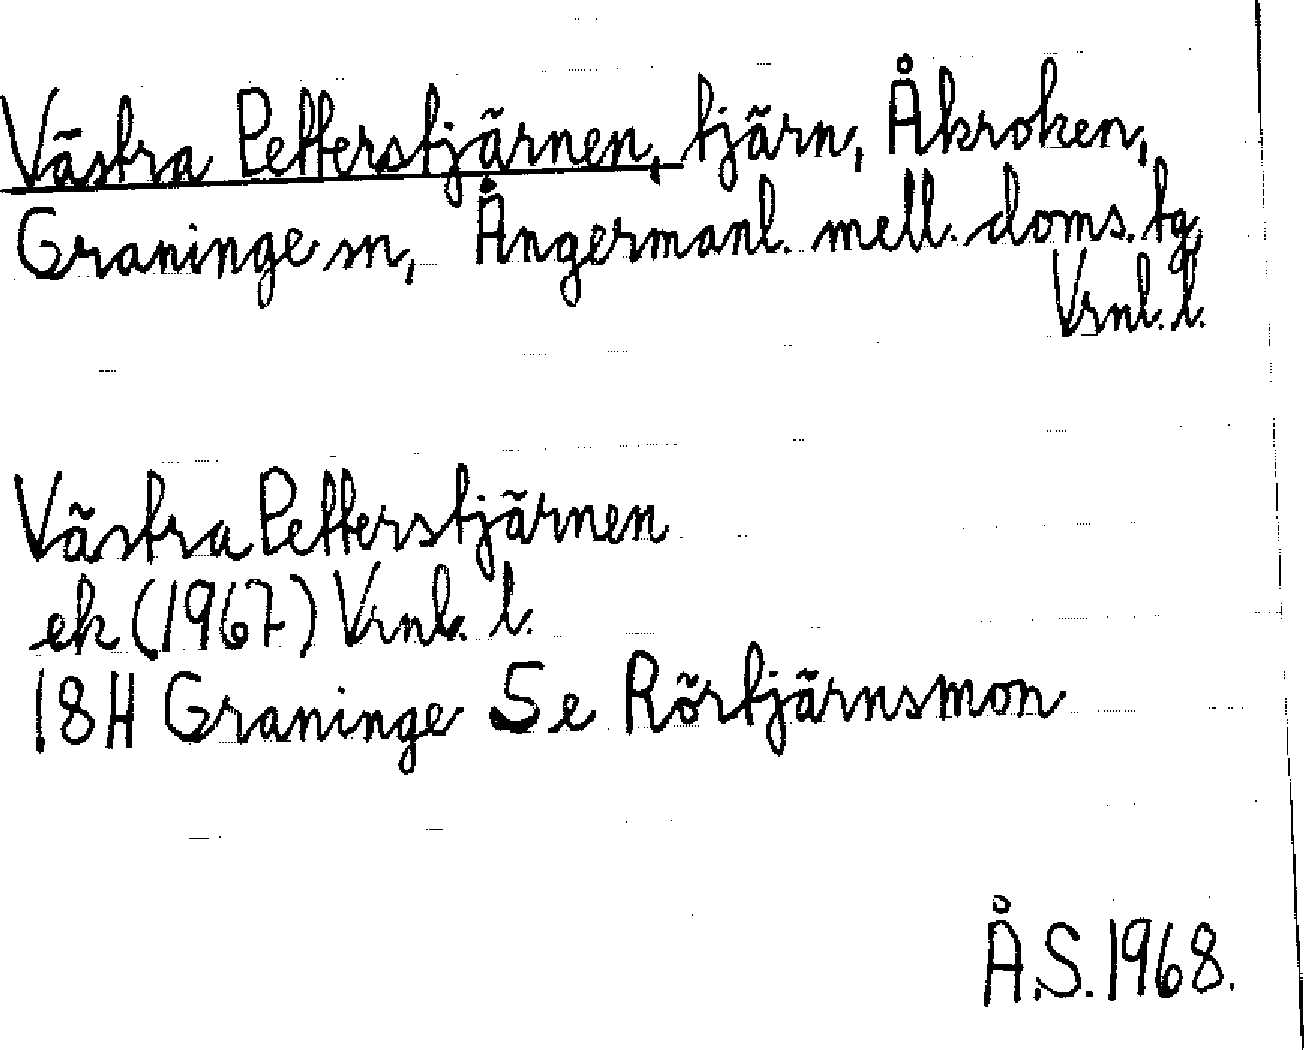 Västra Petterstjärnen, tjärn, Åkroken,
Graninge sn, Ångermanl. mell. doms. tg,
Vrnl. l.
Västra Petterstjärnen
ek (1967) Vrnl. l.
18H Graninge Se Rörtjärnsmon
Å.S. 1968.